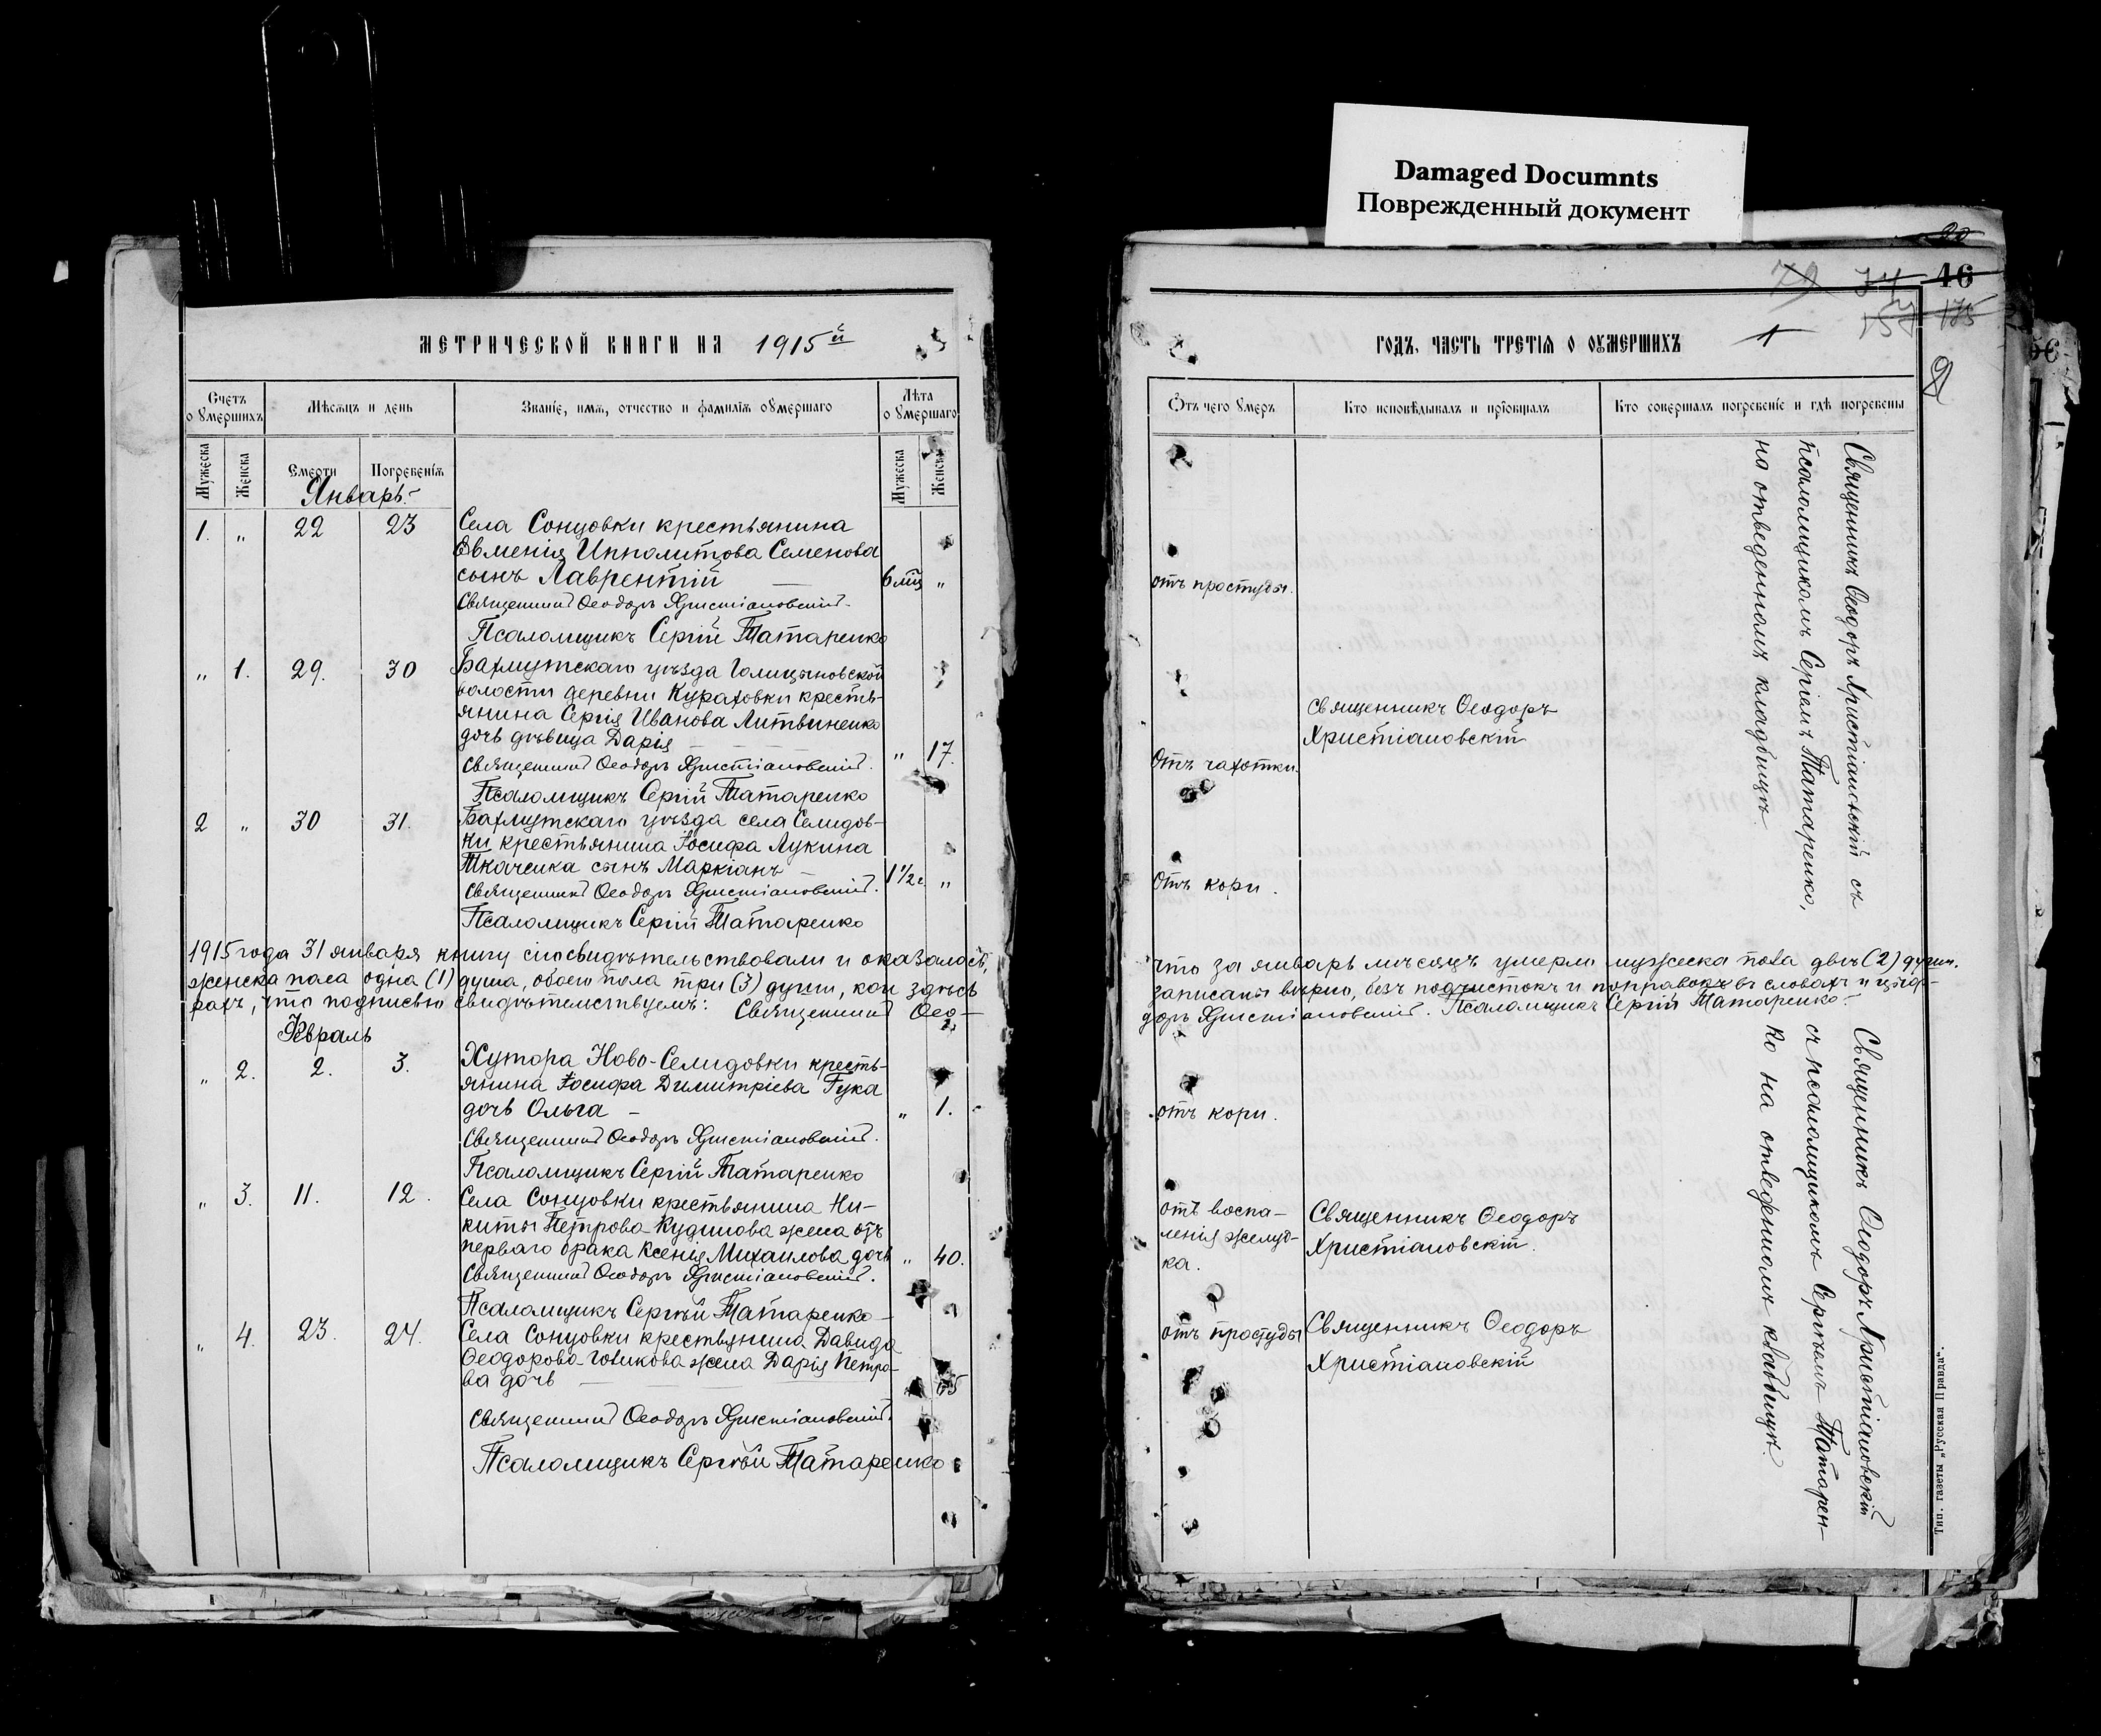 Damaged Documnts
Поврежденный документ
МЕТРИЧЕСКОЙ КНИГИ НА 1915й
Счетъ о умершихъ
Мѣсяцъ и день
Званіе, имя, отчество и фамилія умершаго
Лѣта умершаго
Мужеска
Женска
Смерти
Погребенія
Мужеска
Женска
Январь.
1. „ 22 23 Села Сонцовки крестьянина
Евменія Ипполитова Семенова
сынъ Лаврентій — 6 мц „
Священникъ Ѳеодоръ Христіановскій.
Псаломщикъ Сергій Татаренко
„ 1. 29. 30 Бахмутскаго уѣзда Голицыновской
волости деревни Кураховки кресть-
янина Сергія Иванова Литвиненко
дочь дѣвица Дарія „ 17.
Священникъ Ѳеодоръ Христіановскій.
Псаломщикъ Сергій Татаренко
2 „ 30 31. Бахмутскаго уѣзда села Селидов-
ки крестьянина Іосифа Лукина
Ткаченка сынъ Маркіанъ — 1½ г. „
Священникъ Ѳеодоръ Христіановскій.
Псаломщикъ Сергій Татаренко
1915 года 31 января книгу сію свидѣтельствовали и оказалось,
женска пола одна (1) душа, обоего пола три (3) души, кои здѣсь
рахъ, что подписью свидѣтельствуемъ: Священникъ Ѳео-
Февраль
„ 2. 2. 3. Хутора Ново-Селидовки кресть-
янина Іосифа Димитріева Гука
дочь Ольга — „ 1.
Священникъ Ѳеодоръ Христіановскій.
Псаломщикъ Сергій Татаренко
„ 3. 11. 12. Села Сонцовки крестьянина Ни-
киты Петрова Кудинова жена отъ
перваго брака Ксенія Михаилова дочь „ 40.
Священникъ Ѳеодоръ Христіановскій.
Псаломщикъ Сергѣй Татаренко
„ 4. 23. 24. Села Сонцовки крестьянина Давида
Ѳеодорова жена Дарія Петро-
ва дочь — 65
Священникъ Ѳеодоръ Христіановскій.
Псаломщикъ Сергѣй Татаренко
20
79 74 46
157 175
ГОДЪ, ЧАСТЬ ТРЕТІЯ О УМЕРШИХЪ 1
Отъ чего умеръ
Кто исповѣдывалъ и пріобщалъ
Кто совершалъ погребеніе и гдѣ погребены
отъ простуды.
Священникъ Ѳеодоръ
Христіановскій
Отъ чахотки.
Отъ кори.
Священникъ Ѳеодоръ Христіановскій съ
псаломщикомъ Сергіемъ Татаренко,
на отведенномъ кладбищѣ.
что за январь мѣсяцъ умерло мужеска пола двѣ (2) души.
записаны вѣрно, безъ подчистокъ и поправокъ въ словахъ и циф-
доръ Христіановскій. Псаломщикъ Сергій Татаренко.
отъ кори.
отъ воспа-
ленія желуд-
ка.
Священникъ Ѳеодоръ
Христіановскій.
отъ простуды
Священникъ Ѳеодоръ
Христіановскій
Священникъ Ѳеодоръ Христіановскій
съ псаломщикомъ Сергѣемъ Татарен-
ко на отведенномъ кладбищѣ.
Тип. газеты „Русская Правда“.